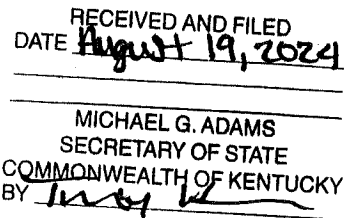 RECEIVED AND FILED
DATE August 19, 2024
MICHAEL G. ADAMS
SECRETARY OF STATE
COMMONWEALTH OF KENTUCKY
BY